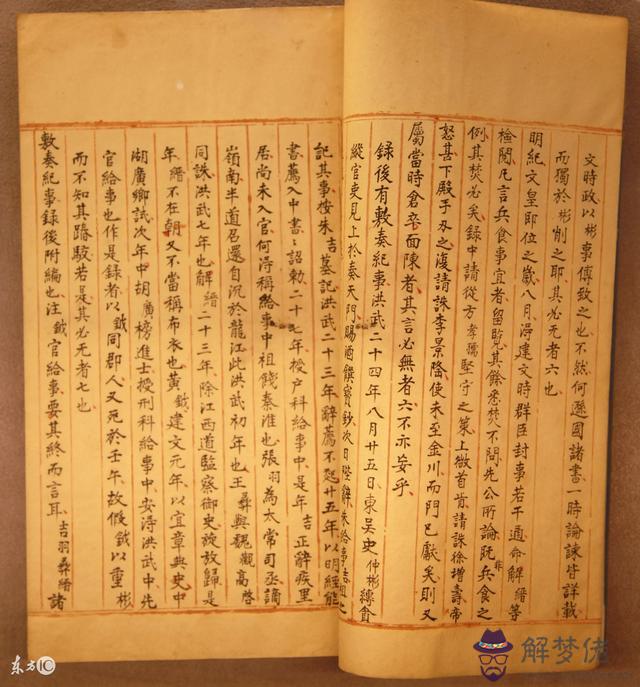 文時政以彬事傅致之也不然何遜國諸書一時論諫皆詳載
而獨於彬削之耶其必无者六也
明紀文皇即位之歲八月淂建文時群臣封事若干通命解縉等
檢閱凡言兵食事宜者留覧其餘悉焚不問先公所論既非兵食之
例其焚必矣录中請從方孝孺堅守之策上微首肯請誅徐增壽帝
怒甚下殿手刃之復請誅李景隆使未至金川而門已獻矣則又
屬當時倉卒面陳者其言必無者六不亦妄乎
録後有敷奏紀事洪武二十四年八月廿五日東吴史仲彬縳貪
縱官吏見上於奏天門賜酒饌寳鈔次日陛辭朱給事吉祖之
記其事桉朱吉墓記洪武二十三年辭薦不起廿五年以明經能
書薦入中書二詔勅二十七年授户科給事中是年吉正辭疾里
居尚未入官何淂稱給事中祖餞秦淮也張羽為太常司丞謫
嶺南半道召還自沉於龍江此洪武初年也王彝與魏觀髙啓
同誅洪武七年也解縉二十三年除江西道監察御史旋放歸是
年縉不在朝又不當稱布衣也黄鉞建文元年以宜章典史中
湖廣鄉試次年中胡廣榜進士授刑科給事中安淂洪武中先
官給事也作是録者以鉞同郡人又死於壬午故假鉞以重彬
而不知其踳駁若是其必无者七也
敷奏紀事録後附編也注鉞官給事要其終而言耳吉羽彝縉諸
解梦佬
东方IC